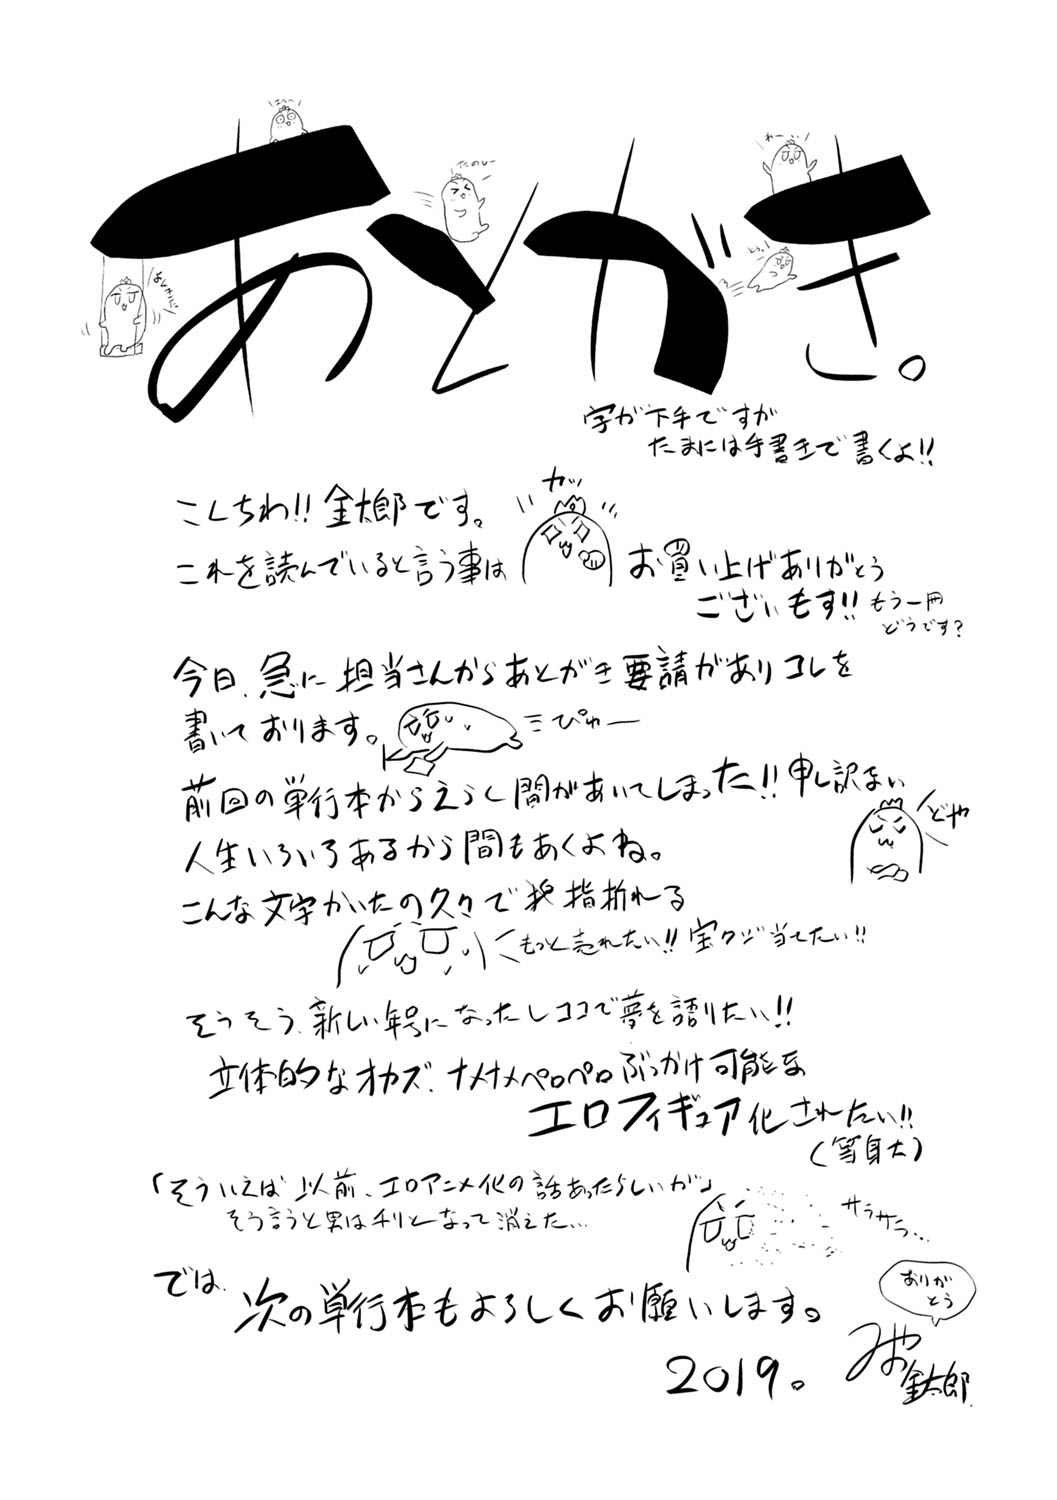 はうっ
あとがき。
たのしー
わーふぃ
おしゃっぷ
とぅ!
字が下手ですが
たまには手書きで書くよ!!
こんちわ!!金太郎です。
カッ
これを読んでいると言う事は
お買い上げありがとう
ございもす!!
もう一冊
どうです?
今日、急に担当さんからあとがき要請がありコレを
書いております。
ぴゅー
前回の単行本からえらく間があいてしまった!!申し訳ない
どや
人生いろいろあるから間もあくよね。
こんな文字かいたの久々で指折れる
もっと売れたい!!宝クジ当てたい!!
そうそう、新しい年号になったしココで夢を語りたい!!
立体的なオカズ、ナメナメペロペロぶっかけ可能な
エロフィギュア化されたい!!
(等身大)
「そういえば以前、エロアニメ化の話あったらしいが」
そう言うと男はチリとなって消えた…
サラサラ…
では、
次の単行本もよろしくお願いします。
ありが
とう
2019。
みや
金太郎